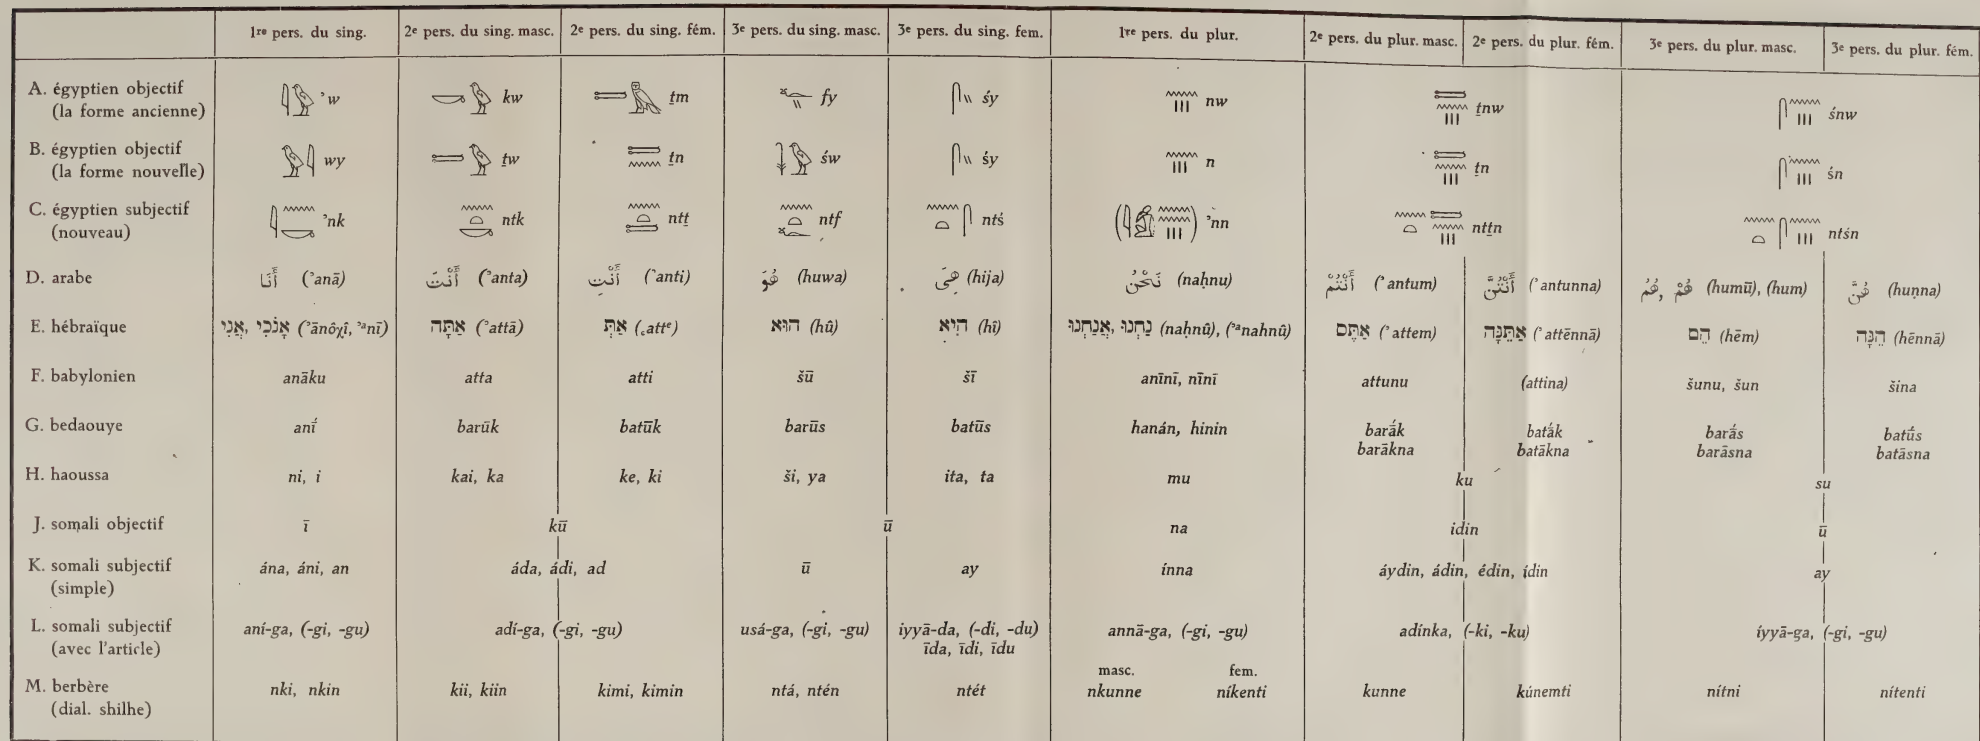 1re pers. du sing. 2e pers. du sing. masc. 2e pers. du sing. fém. 3e pers. du sing. masc. 3e pers. du sing. fem. 1re pers. du plur. 2e pers. du plur. masc. 2e pers. du plur. fém. 3e pers. du plur. masc. 3e pers. du plur. fém.
A. égyptien objectif (la forme ancienne) ’w kw ṯm fy śy nw ṯnw śnw
B. égyptien objectif (la forme nouvelle) wy ṯw ṯn św śy n ṯn śn
C. égyptien subjectif (nouveau) ’nk ntk ntṯ ntf ntś ’nn ntṯn ntśn
D. arabe أَنَا (’anā) أَنْتَ (’anta) أَنْتِ (’anti) هُوَ (huwa) هِىَ (hija) نَحْنُ (naḥnu) أَنْتُمْ (’antum) أَنْتُنَّ (’antunna) هُمْ, هُمُ (humū), (hum) هُنَّ (huṇna)
E. hébraïque אָנֹכִי, אֲנִי (’ānôχî, ’ᵃnī) אַתָּה (’attā) אַתְּ (‹attᵉ) הוּא (hû) הִיא (hî) נַחְנוּ, אֲנַחְנוּ (naḥnû), (’ᵃnahnû) אַתֶּם (’attem) אַתֵּנָּה (’attēnnā) הֵם (hēm) הֵנָּה (hēnnā)
F. babylonien anāku atta atti šū šī anīnī, nīnī attunu (attina) šunu, šun šina
G. bedaouye anī́ barūk batūk barūs batūs hanán, hinin barā́k batā́k barā́s batū́s
barākna batākna barāsna batāsna
H. haoussa ni, i kai, ka ke, ki ši, ya ita, ta mu ku su
J. somali objectif ī kū ū na idin ū
K. somali subjectif (simple) ána, áni, an áda, ádi, ad ū ay ínna áydin, ádin, édin, ídin ay
L. somali subjectif (avec l'article) aní-ga, (-gi, -gu) adí-ga, (-gi, -gu) usá-ga, (-gi, -gu) iyyā-da, (-di, -du) annā-ga, (-gi, -gu) adínka, (-ki, -ku) íyyā-ga, (-gi, -gu)
īda, īdi, īdu
masc. fem.
M. berbère (dial. shilhe) nki, nkin kii, kiin kimi, kimin ntá, ntén ntét nkunne níkenti kunne kúnemti nítni nítenti